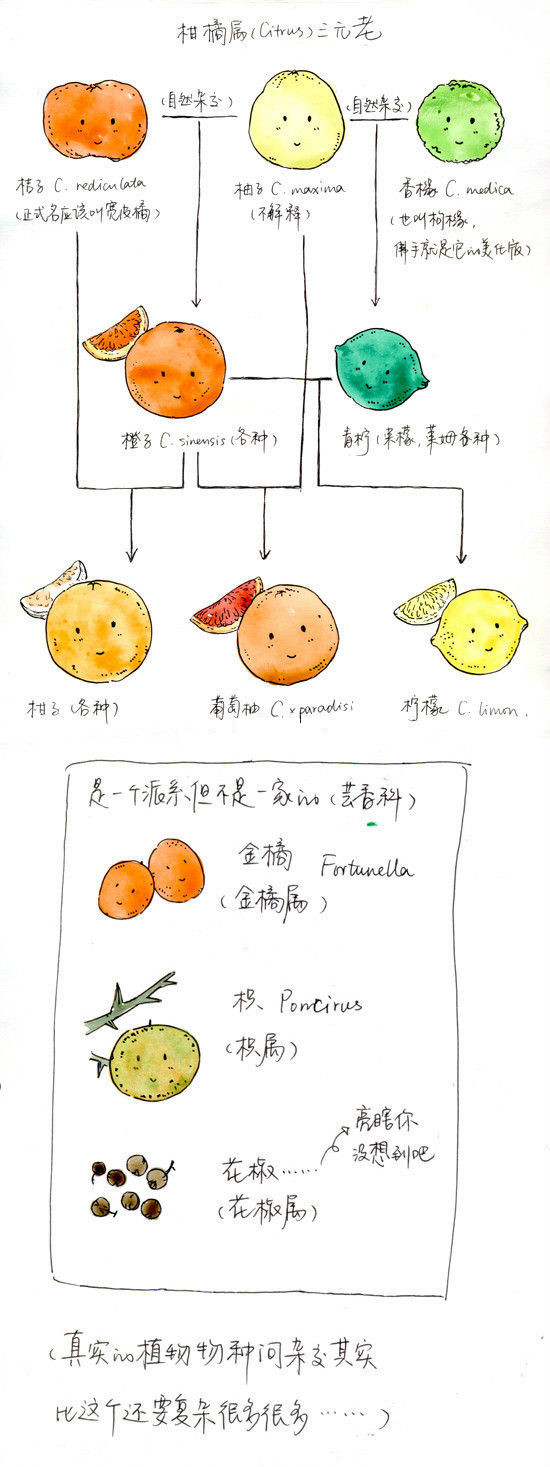 柑橘属(Citrus)三元老
(自然杂交)
(自然杂交)
桔子 C. rediculata
(正式名应该叫宽皮橘)
柚子 C. maxima
(不解释)
香橼 C. medica
(也叫枸橼,
佛手就是它的美化版)
橙子 C. sinensis (各种)
青柠 (来檬,莱姆各种)
柑子 (各种)
葡萄柚 C.×paradisi
柠檬 C. limon.
是一个派系但不是一家的 (芸香科)
金橘 Fortunella
(金橘属)
枳 Poncirus
(枳属)
亮瞎你
没想到吧
花椒……
(花椒属)
(真实的植物物种间杂交其实
比这个还要复杂很多很多……)